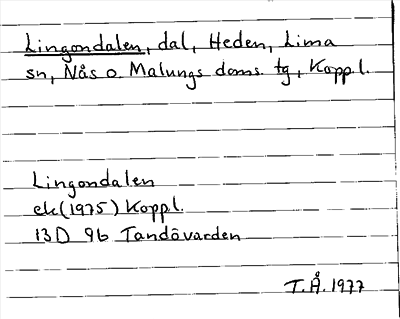 Lingondalen, dal, Heden, Lima
sn, Nås o. Malungs doms. tg, Kopp l.
Lingondalen
ek(1975) Kopp l.
13D 9b Tandövarden
T.Å. 1977